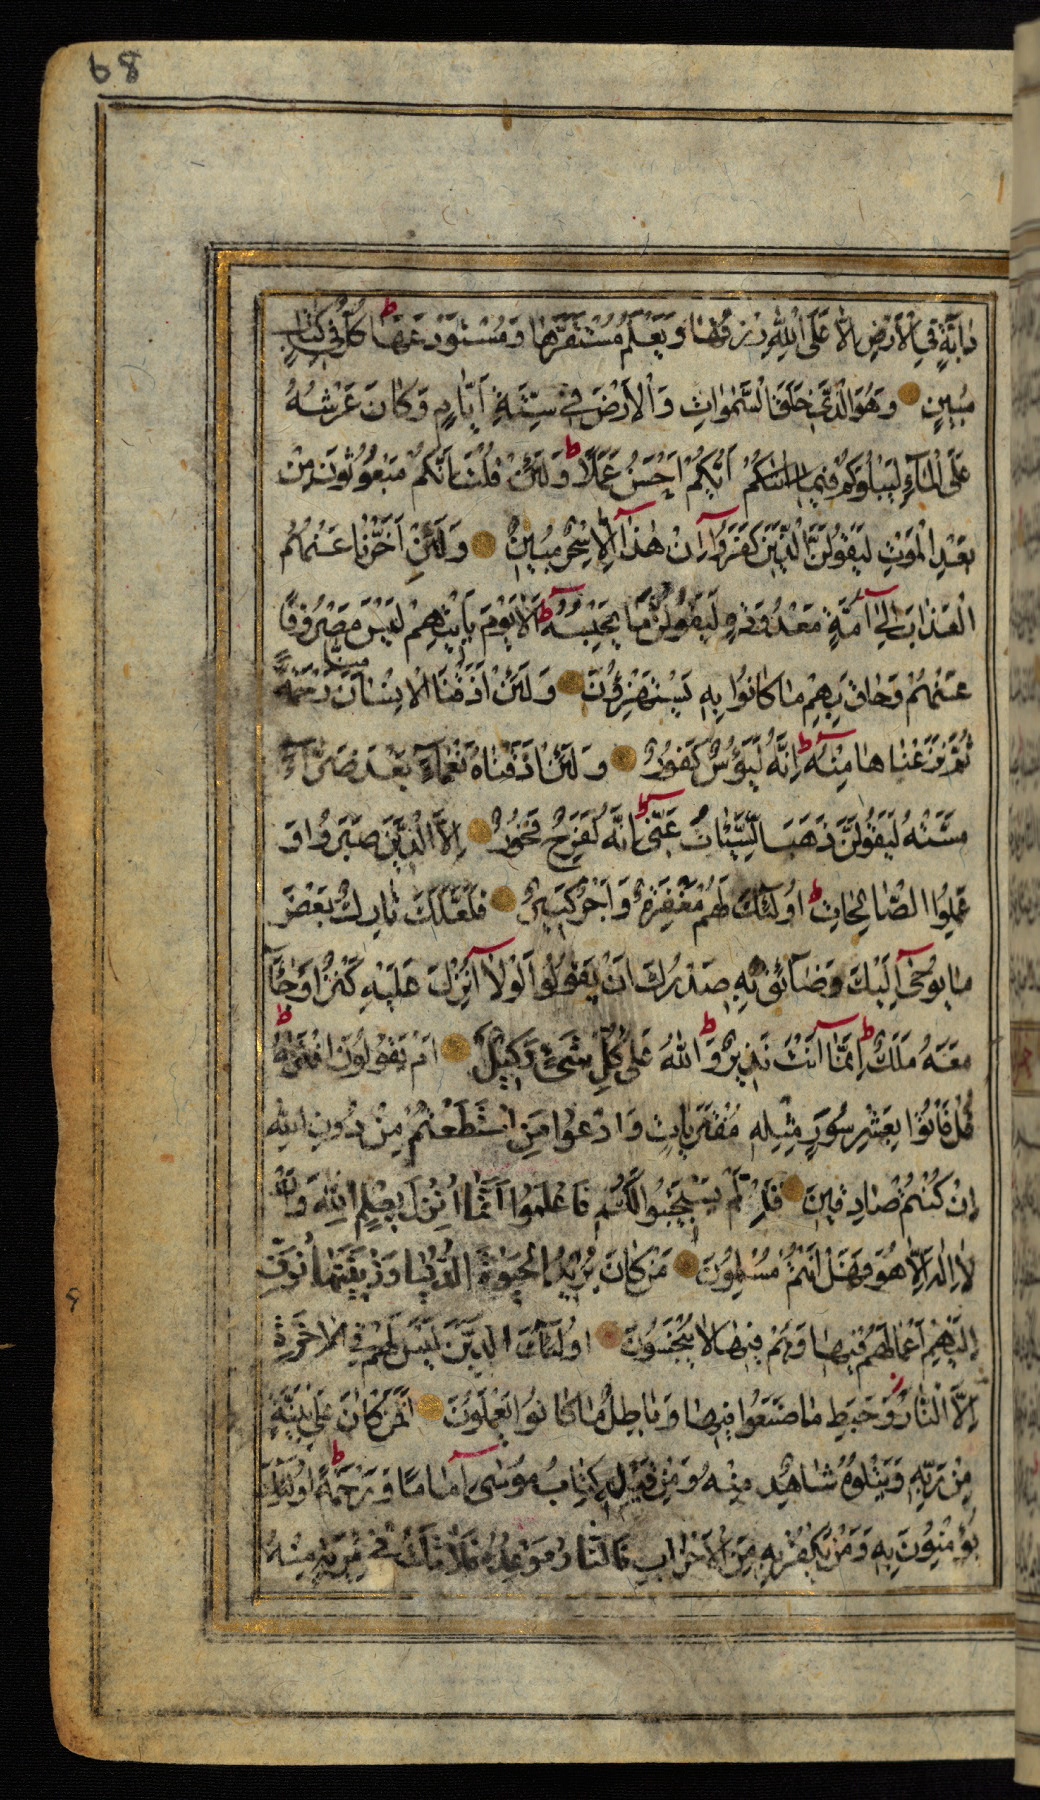 68
دَابَّةٍ فِي الْاَرْضِ اِلَّا عَلَى اللّٰهِ رِزْقُهَا وَيَعْلَمُ مُسْتَقَرَّهَا وَمُسْتَوْدَعَهَا ط كُلٌّ فِي كِتَابٍ
مُبِينٍ وَهُوَ الَّذِي خَلَقَ السَّمٰوَاتِ وَالْاَرْضَ فِي سِتَّةِ اَيَّامٍ وَكَانَ عَرْشُهُ
عَلَى الْمَآءِ لِيَبْلُوَكُمْ اَيُّكُمْ اَحْسَنُ عَمَلًا ط وَلَئِنْ قُلْتَ اِنَّكُمْ مَبْعُوثُونَ مِنْ
بَعْدِ الْمَوْتِ لَيَقُولَنَّ الَّذِينَ كَفَرُوا اِنْ هٰذَا اِلَّا سِحْرٌ مُبِينٌ وَلَئِنْ اَخَّرْنَا عَنْهُمُ
الْعَذَابَ اِلٰى اُمَّةٍ مَعْدُودَةٍ لَيَقُولُنَّ مَا يَحْبِسُهُ ط اَلَا يَوْمَ يَاْتِيهِمْ لَيْسَ مَصْرُوفًا
عَنْهُمْ وَحَاقَ بِهِمْ مَا كَانُوا بِهِ يَسْتَهْزِؤُنَ وَلَئِنْ اَذَقْنَا الْاِنْسَانَ مِنَّا رَحْمَةً
ثُمَّ نَزَعْنَاهَا مِنْهُ ط اِنَّهُ لَيَؤُسٌ كَفُورٌ وَلَئِنْ اَذَقْنَاهُ نَعْمَآءَ بَعْدَ ضَرَّآءَ
مَسَّتْهُ لَيَقُولَنَّ ذَهَبَ السَّيِّئَاتُ عَنِّي ط اِنَّهُ لَفَرِحٌ فَخُورٌ اِلَّا الَّذِينَ صَبَرُوا وَ
عَمِلُوا الصَّالِحَاتِ ط اُولٰٓئِكَ لَهُمْ مَغْفِرَةٌ وَاَجْرٌ كَبِيرٌ فَلَعَلَّكَ تَارِكٌ بَعْضَ
مَا يُوحٰٓى اِلَيْكَ وَضَآئِقٌ بِهِ صَدْرُكَ اَنْ يَقُولُوا لَوْلَا اُنْزِلَ عَلَيْهِ كَنْزٌ اَوْ جَآءَ
مَعَهُ مَلَكٌ ط اِنَّمَا اَنْتَ نَذِيرٌ ط وَاللّٰهُ عَلٰى كُلِّ شَيْءٍ وَكِيلٌ اَمْ يَقُولُونَ افْتَرٰهُ ط
قُلْ فَاْتُوا بِعَشْرِ سُوَرٍ مِثْلِهِ مُفْتَرَيَاتٍ وَادْعُوا مَنِ اسْتَطَعْتُمْ مِنْ دُونِ اللّٰهِ
اِنْ كُنْتُمْ صَادِقِينَ فَاِلَّمْ يَسْتَجِيبُوا لَكُمْ فَاعْلَمُوا اَنَّمَا اُنْزِلَ بِعِلْمِ اللّٰهِ وَاَنْ
لَا اِلٰهَ اِلَّا هُوَ فَهَلْ اَنْتُمْ مُسْلِمُونَ مَنْ كَانَ يُرِيدُ الْحَيٰوةَ الدُّنْيَا وَزِينَتَهَا نُوَفِّ
اِلَيْهِمْ اَعْمَالَهُمْ فِيهَا وَهُمْ فِيهَا لَا يُبْخَسُونَ اُولٰٓئِكَ الَّذِينَ لَيْسَ لَهُمْ فِي الْاٰخِرَةِ
اِلَّا النَّارُ وَحَبِطَ مَا صَنَعُوا فِيهَا وَبَاطِلٌ مَا كَانُوا يَعْمَلُونَ اَفَمَنْ كَانَ عَلٰى بَيِّنَةٍ
مِنْ رَبِّهِ وَيَتْلُوهُ شَاهِدٌ مِنْهُ وَمِنْ قَبْلِهِ كِتَابُ مُوسٰٓى اِمَامًا وَرَحْمَةً ط اُولٰٓئِكَ
يُؤْمِنُونَ بِهِ وَمَنْ يَكْفُرْ بِهِ مِنَ الْاَحْزَابِ فَالنَّارُ مَوْعِدُهُ فَلَا تَكُ فِي مِرْيَةٍ مِنْهُ